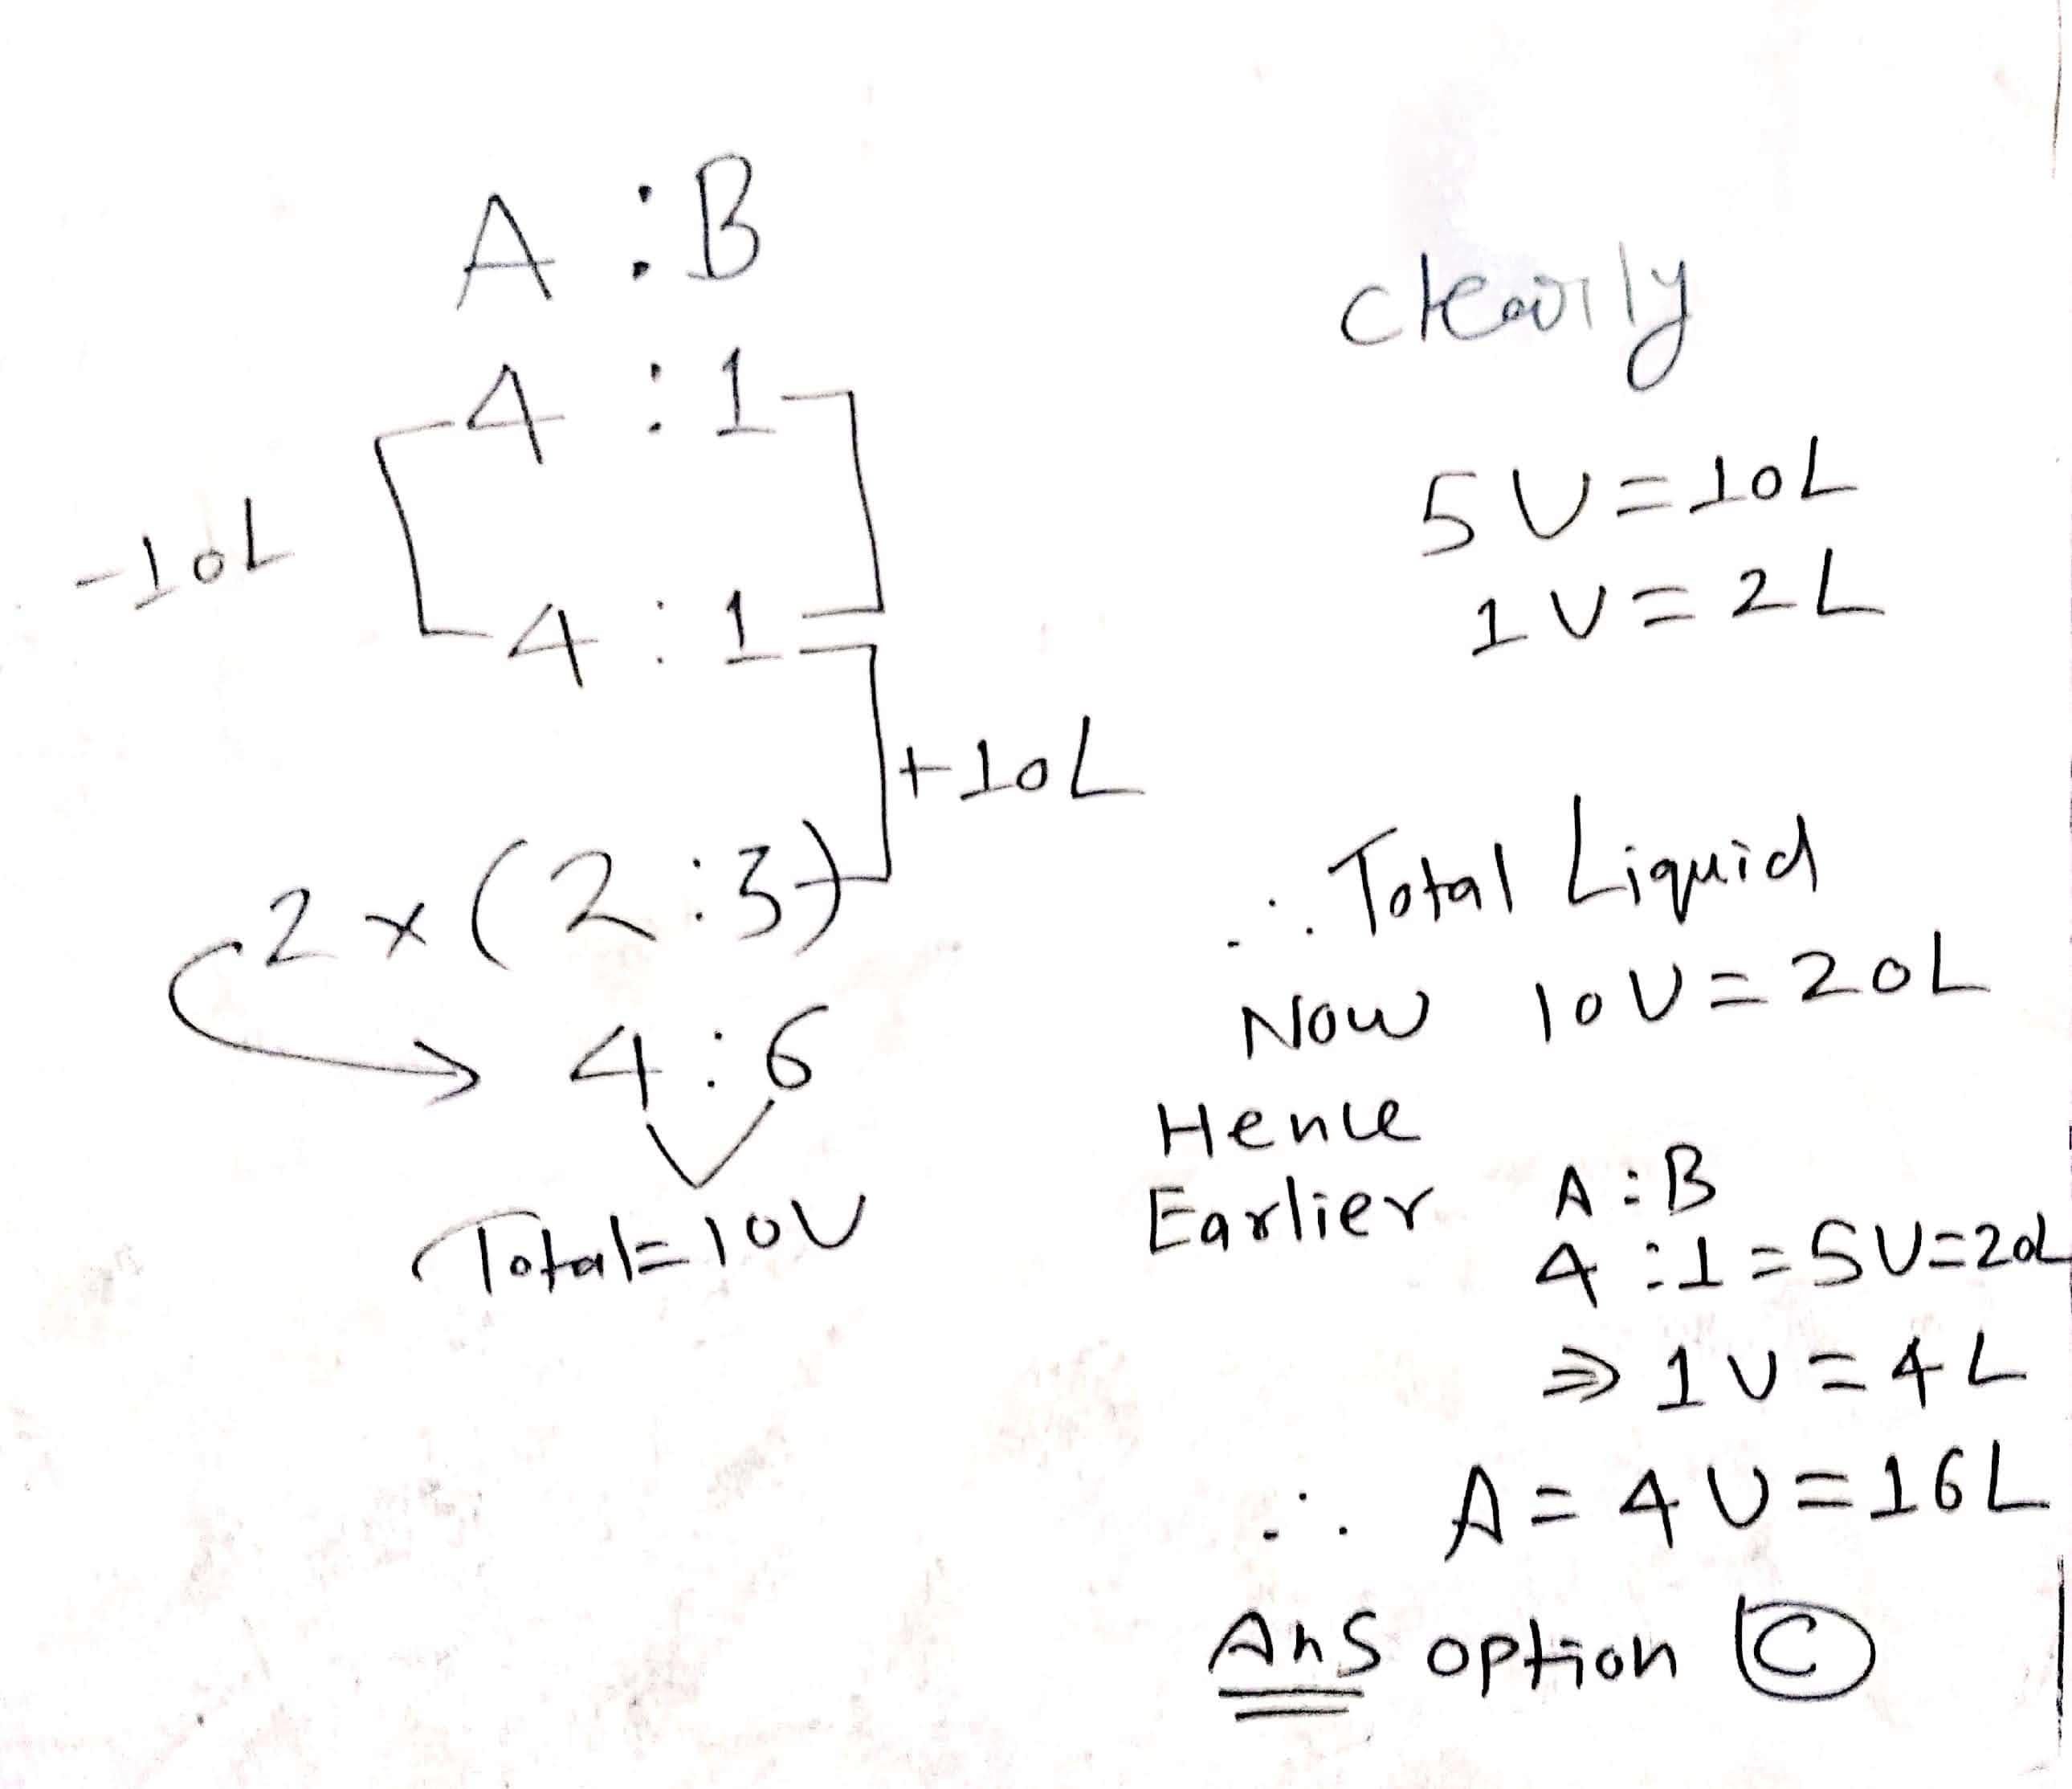 A : B
4 : 1
-10L
4 : 1
+10L
2 × (2 : 3)
4 : 6
Total = 10U
clearly
5U = 10L
1U = 2L
∴ Total Liquid
Now 10U = 20L
Hence
Earlier A : B
4 : 1 = 5U = 20L
⇒ 1U = 4L
∴ A = 4U = 16L
Ans option C